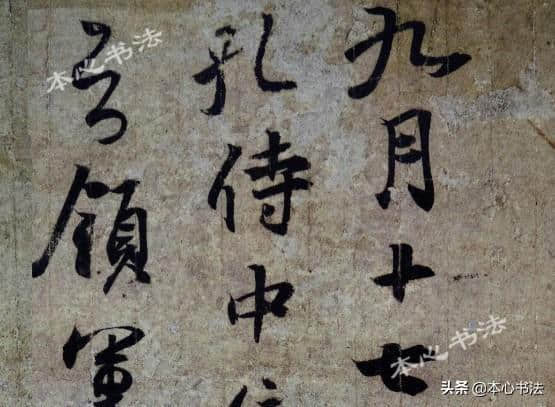 九月十七
孔侍中
領軍
本心书法
本心书法
头条 @本心书法